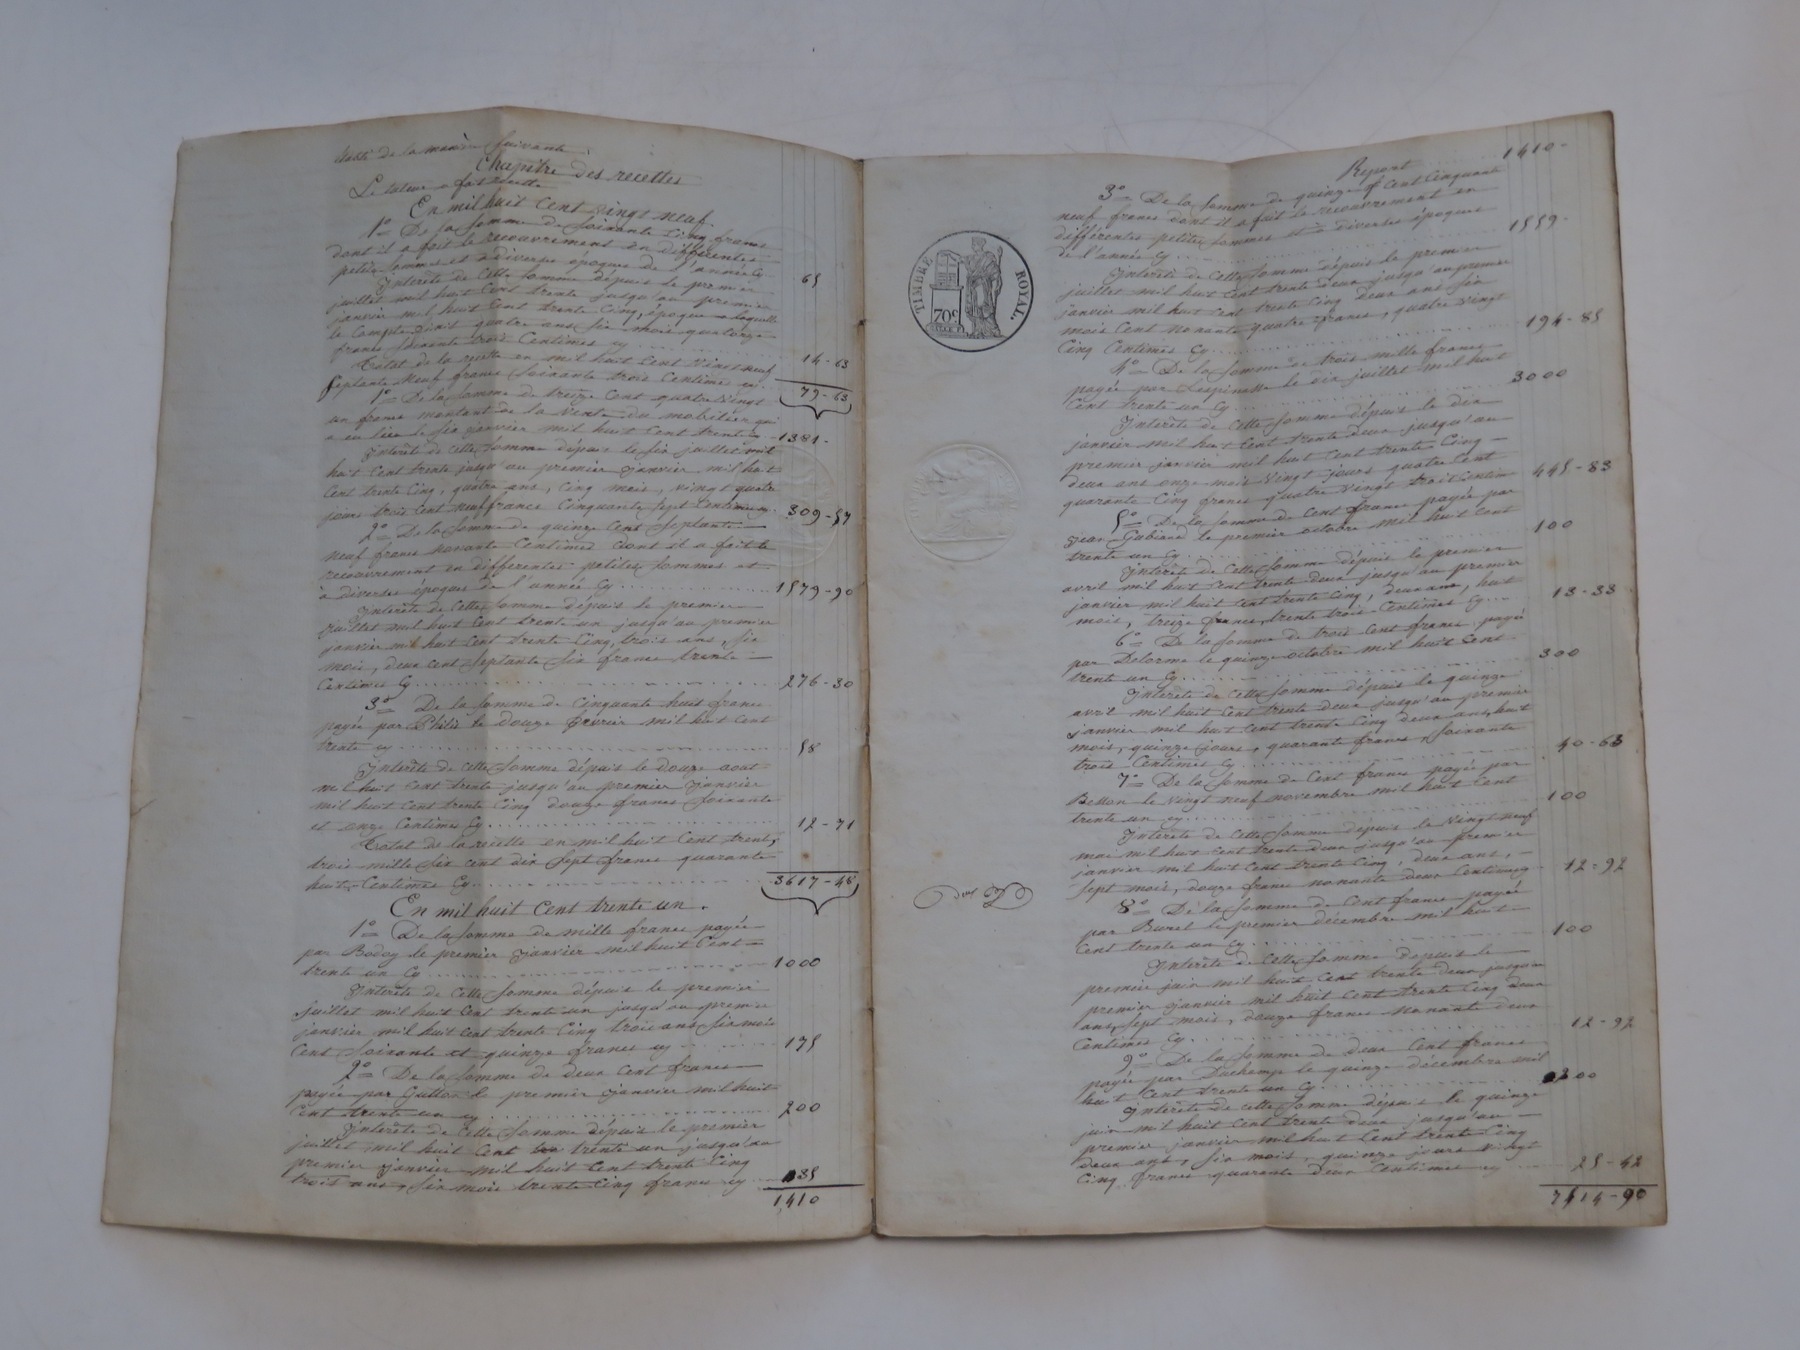 établi de la manière suivante
Chapitre des recettes
Le tuteur a fait recette
En mil huit cent vingt neuf
1° De la somme de soixante cinq francs
dont il a fait le recouvrement en différentes
petites sommes et à diverses époques de l'année cy 65
Interêts de cette somme dépuis le premier
juillet mil huit cent trente jusqu'au premier
janvier mil huit cent trente cinq, époque a laquelle
le compte quatre ans six mois quatorze
francs soixante trois centimes cy 14-63
Total de la recette en mil huit cent vingt neuf
septante neuf francs soixante trois centimes cy 79-63
1° De la somme de treize cent quatre vingt
un francs montant de la vente du mobilier qui
a eu lieu le six janvier mil huit cent trente cy 1381-
Interêts de cette somme dépuis le six juillet mil
huit cent trente jusqu'au premier janvier mil huit
cent trente cinq, quatre ans, cinq mois, vingt quatre
jours trois cent neuf francs cinquante sept centimes cy 309-57
2° De la somme de quinze cent septante
neuf francs nonante centimes dont il a fait le
recouvrement en differentes petites sommes et
à diverses époques de l'année cy 1579-90
Interêts de cette somme dépuis le premier
juillet mil huit cent trente un jusqu'au premier
janvier mil huit cent trente cinq, trois ans, six
mois, deux cent septante six francs trente
centimes cy 276-30
3° De la somme de cinquante huit francs
payée par Philis le douze février mil huit cent
trente cy 58
Interêts de cette somme dépuis le douze aout
mil huit cent trente jusqu'au premier janvier
mil huit cent trente cinq douze francs soixante
et onze centimes cy 12-71
Total de la recette en mil huit cent trente,
trois mille six cent dix sept francs quarante
huit centimes cy 3617-48
En mil huit cent trente un.
1° De la somme de mille francs payée
par Bodoy le premier janvier mil huit cent
trente un cy 1000
Interêts de cette somme dépuis le premier
juillet mil huit cent trente un jusqu'au premier
janvier mil huit cent trente cinq trois ans six mois
cent soixante et quinze francs cy 175
2° De la somme de deux cent francs
payée par le premier janvier mil huit
cent trente un cy 200
Interêts de cette somme dépuis le premier
juillet mil huit cent trente un jusqu'au
premier janvier mil huit cent trente cinq
trois ans, six mois trente cinq francs cy 35
1410
TIMBRE ROYAL.
70c.
Report 1410-
3° De la somme de quinze cent cinquante
neuf francs dont il a fait le recouvrement en
différentes petites sommes et à diverses époques
de l'année cy 1559-
Interêts de cette somme dépuis le premier
juillet mil huit cent trente deux jusqu'au premier
janvier mil huit cent trente cinq deux ans six
mois cent nonante quatre francs, quatre vingt
cinq centimes cy 194-85
4° De la somme de trois mille francs
payée par Lespinasse le dix juillet mil huit
cent trente un cy 3000
Interêts de cette somme dépuis le dix
janvier mil huit cent trente deux jusqu'au
premier janvier mil huit cent trente cinq
deux ans onze mois vingt jours quatre cent
quarante cinq francs quatre vingt trois centimes 445-83
5° De la somme de cent francs payée par
jean Gabiane le premier octobre mil huit cent
trente un cy 100
Interêts de cette somme dépuis le premier
avril mil huit cent trente deux jusqu'au premier
janvier mil huit cent trente cinq, deux ans, huit
mois, treize francs, trente trois centimes cy 13-33
6° De la somme de trois cent francs payée
par Delorme le quinze octobre mil huit cent
trente un cy 300
Interêts de cette somme dépuis le quinze
avril mil huit cent trente deux jusqu'au premier
janvier mil huit cent trente cinq deux ans, huit
mois, quinze jours, quarante francs, soixante
trois centimes cy 40-63
7° De la somme de cent francs payée par
Besson le vingt neuf novembre mil huit cent
trente un cy 100
Interêts de cette somme dépuis le vingt neuf
mai mil huit cent trente deux jusqu'au premier
janvier mil huit cent trente cinq, deux ans,
sept mois, douze francs nonante deux centimes cy 12-92
8° De la somme de cent francs payée
par Burel le premier décembre mil huit
cent trente un cy 100
Interêts de cette somme dépuis le
premier juin mil huit cent trente deux jusqu'au
premier janvier mil huit cent trente cinq deux
ans, sept mois, douze francs nonante deux
centimes cy 12-92
9° De la somme de deux cent francs
payée par Duchamp le quinze décembre mil
huit cent trente un cy 200
Interêts de cette somme dépuis le quinze
juin mil huit cent trente deux jusqu'au
premier janvier mil huit cent trente cinq
deux ans, six mois, quinze jours vingt
cinq francs quarante deux centimes cy 25-42
7414-90